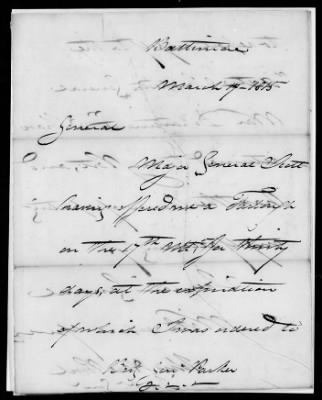 Baltimore
March 9 - 1815
General
Major General Scott
having offered me a Furlough
on the 17th Ulto, for thirty
days, at the expiration
of which I was ordered to
Brig Genl Parker